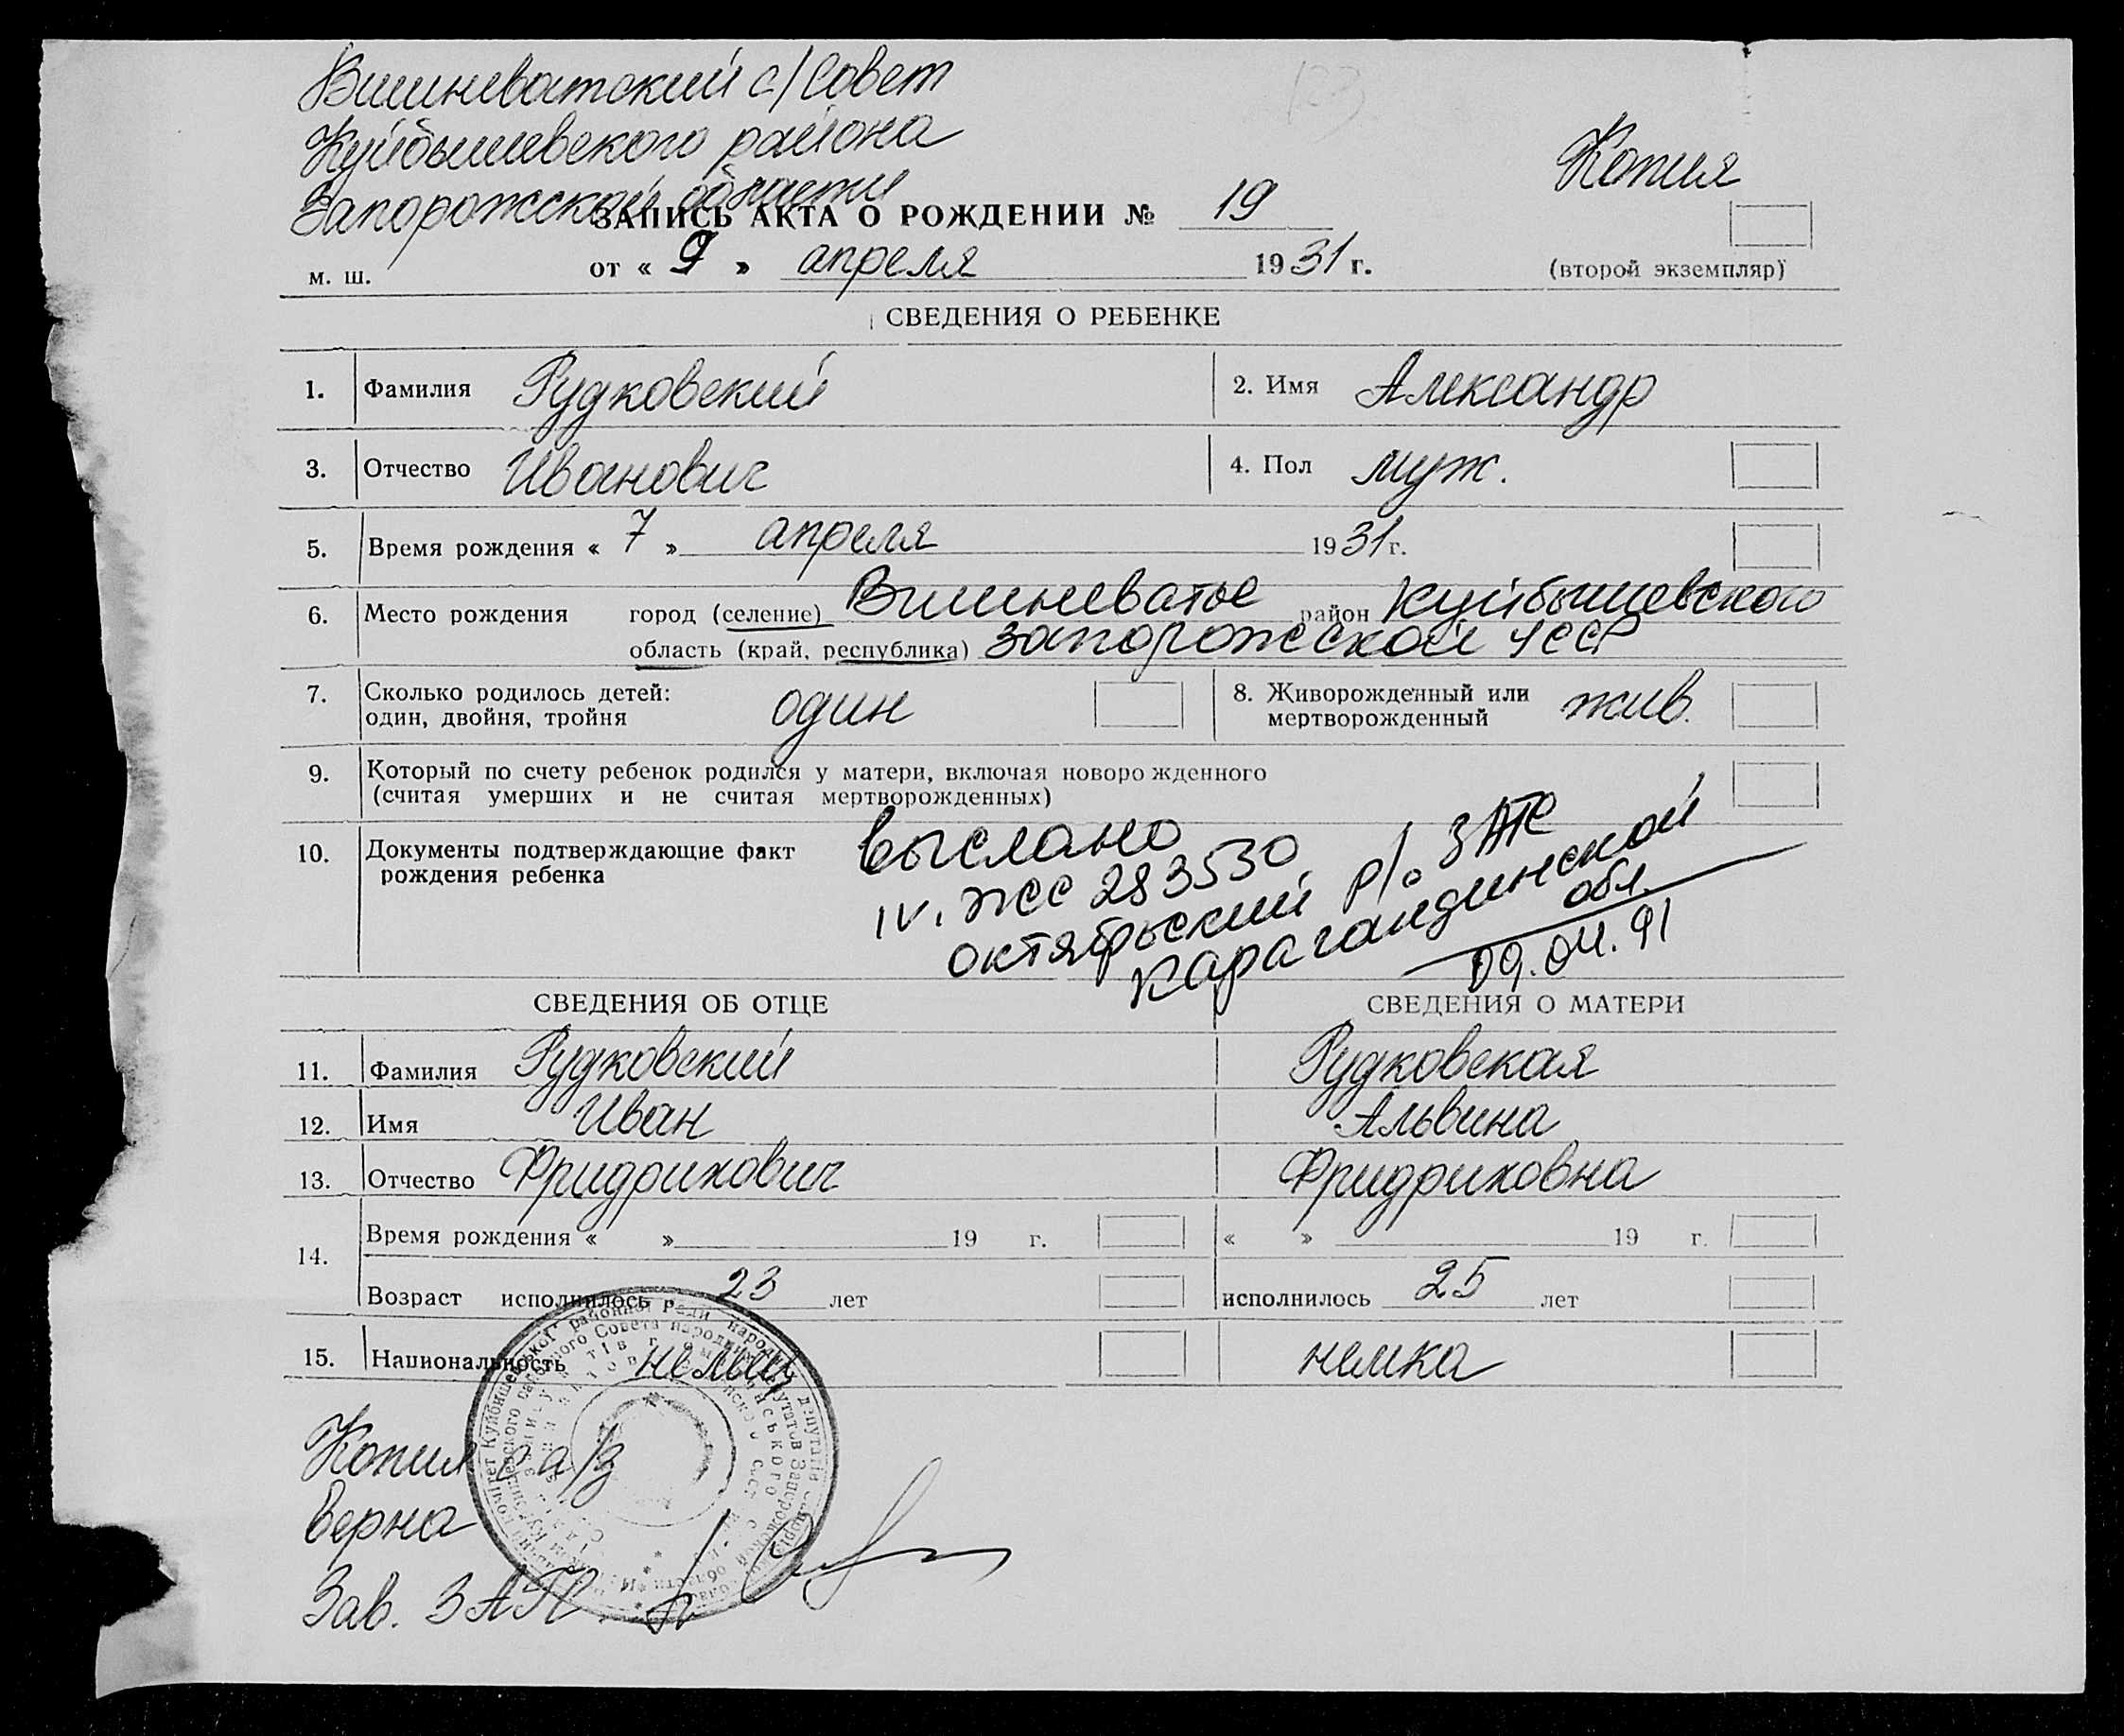 Вишневатский с/Совет
Куйбышевского района
Запорожской области
Копия
ЗАПИСЬ АКТА О РОЖДЕНИИ № 19
м. ш. от « 9 » апреля 1931 г. (второй экземпляр)
СВЕДЕНИЯ О РЕБЕНКЕ
1. Фамилия Рудковский 2. Имя Александр
3. Отчество Иванович 4. Пол муж.
5. Время рождения « 7 » апреля 1931 г.
6. Место рождения город (селение) Вишневатое район Куйбышевского
область (край, республика) Запорожской УССР
7. Сколько родилось детей: один, двойня, тройня один 8. Живорожденный или мертворожденный жив.
9. Который по счету ребенок родился у матери, включая новорожденного
(считая умерших и не считая мертворожденных)
10. Документы подтверждающие факт рождения ребенка
выслано
IV. ЖС 283530
октябрьский р/о ЗАГС
Карагандинской
обл.
09.04.91
СВЕДЕНИЯ ОБ ОТЦЕ СВЕДЕНИЯ О МАТЕРИ
11. Фамилия Рудковский Рудковская
12. Имя Иван Альвина
13. Отчество Фридрихович Фридриховна
14. Время рождения « » 19 г. « » 19 г.
Возраст исполнилось 23 лет исполнилось 25 лет
15. Национальность немец немка
Копия с а/з
верна
Зав. ЗАГС